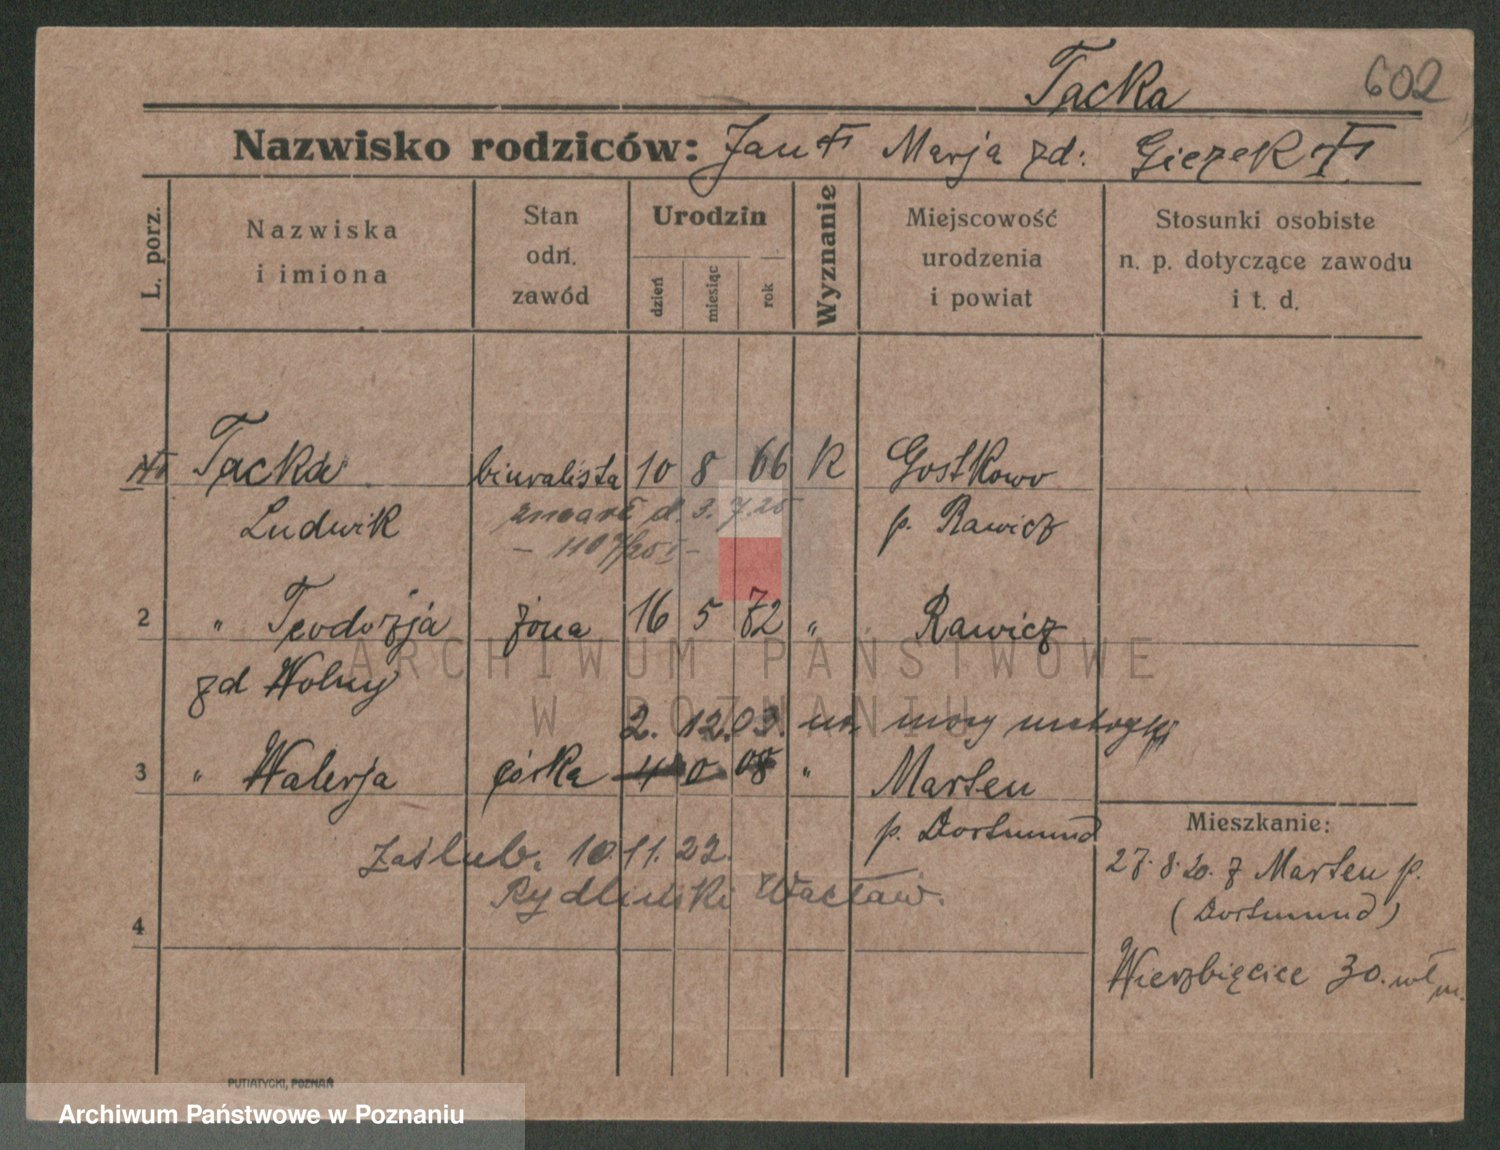 Tacka 602
Nazwisko rodziców: Jan † Marja zd: Giezek †
L. porz.
Nazwiska i imiona
Stan odn. zawód
Urodzin
dzień
miesiąc
rok
Wyznanie
Miejscowość urodzenia i powiat
Stosunki osobiste n. p. dotyczące zawodu i t. d.
Tacka biuralista 10 8 66 K Gostkowo
Ludwik zmarł d. 3. 7. 25 p. Rawicz
2 " Teodozja żona 16 5 72 " Rawicz
zd Wolny
2. 12. 03. na mocy metryki
3 " Walerja córka 08 " Marten
p. Dortmund
Zaślub. 10.11.22.
Rydliński Wacław.
4
Mieszkanie:
27.8.20. z Marten p.
(Dortmund)
Wierzbięcice 30.
PUTIATYCKI, POZNAŃ
ARCHIWUM PAŃSTWOWE
W POZNANIU
Archiwum Państwowe w Poznaniu